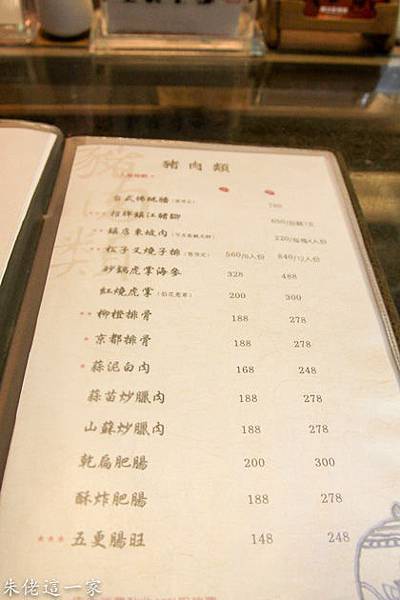 豬肉類
台式佛跳牆 780
*** 招牌鎮江豬腳
*** 鎮店東坡肉
*** 松子叉燒子排 560/8人份 840/12人份
砂鍋虎掌海參 328 488
紅燒虎掌 200 300
** 柳橙排骨 188 278
* 京都排骨 188 278
* 蒜泥白肉 168 248
蒜苗炒臘肉 188 278
山蘇炒臘肉 188 278
乾扁肥腸 200 300
酥炸肥腸 188 278
*** 五更腸旺 148 248
朱佬這一家